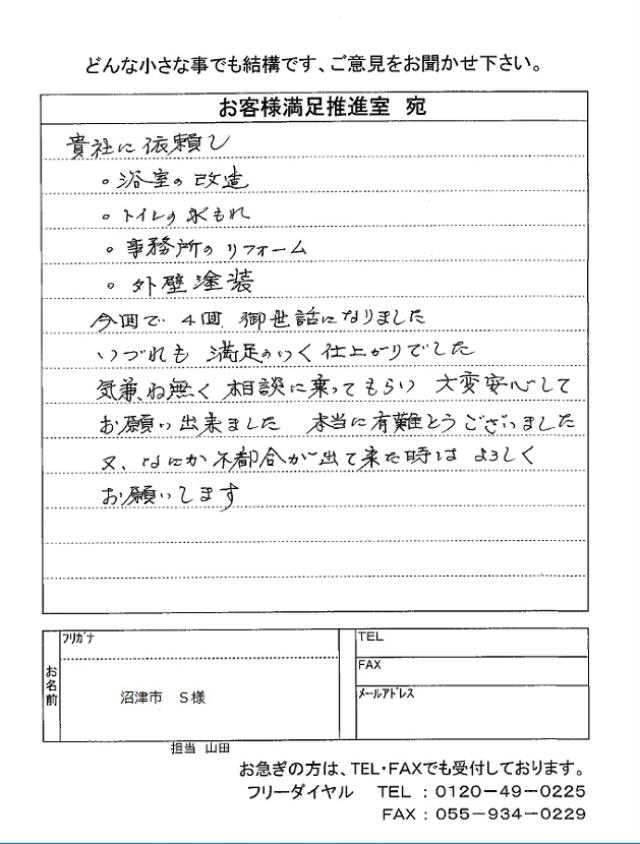 どんな小さな事でも結構です、ご意見をお聞かせ下さい。
お客様満足推進室 宛
貴社に依頼し
。浴室の改造
。トイレの水もれ
。事務所のリフォーム
。外壁塗装
今回で 4回 御世話になりました
いづれも 満足のいく仕上がりでした
気兼ね無く 相談に乗ってもらい 大変安心して
お願い出来ました 本当に有難とうございました
又、なにか不都合が出て来た時は よろしく
お願いします
お名前
フリガナ
沼津市 S様
TEL
FAX
メールアドレス
担当 山田
お急ぎの方は、TEL・FAXでも受付しております。
フリーダイヤル TEL:0120-49-0225
FAX:055-934-0229